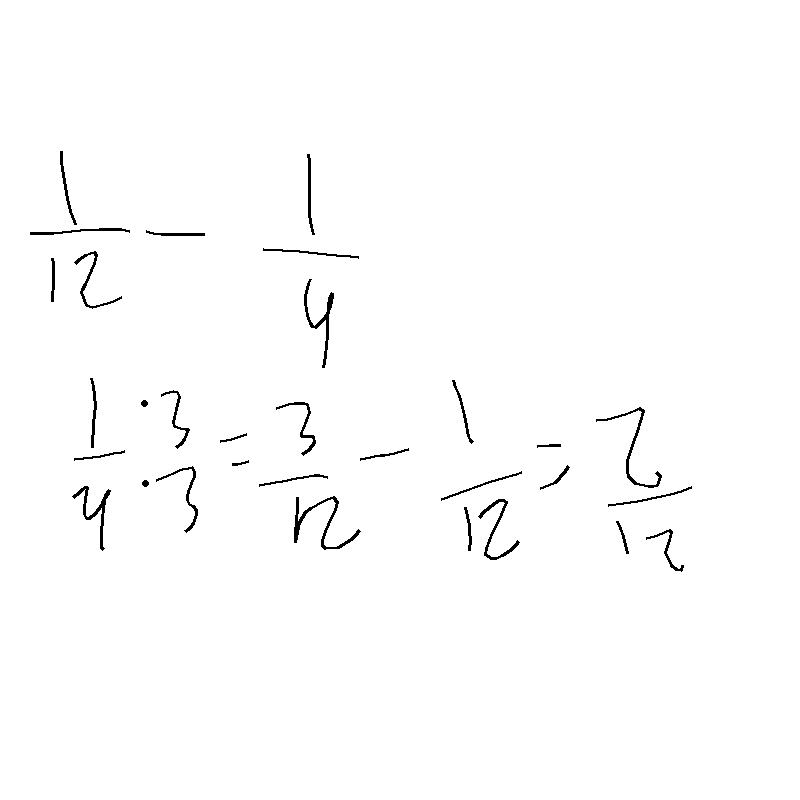 1/12 - 1/4
1/4 · 3/3 = 3/12 - 1/12 = 2/12